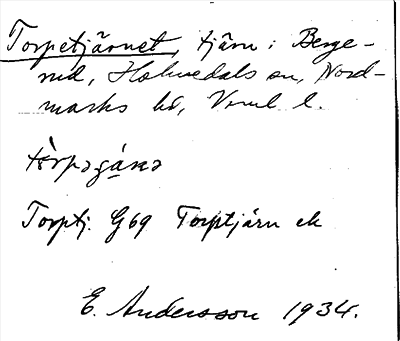 Torpetjärnet, tjärn i Berge-
rud, Holmedals sn, Nord-
marks hd, Vrml l.
tòrpəçá̤nə
Torptj. G69 Torptjärn ek
E. Andersson 1934.